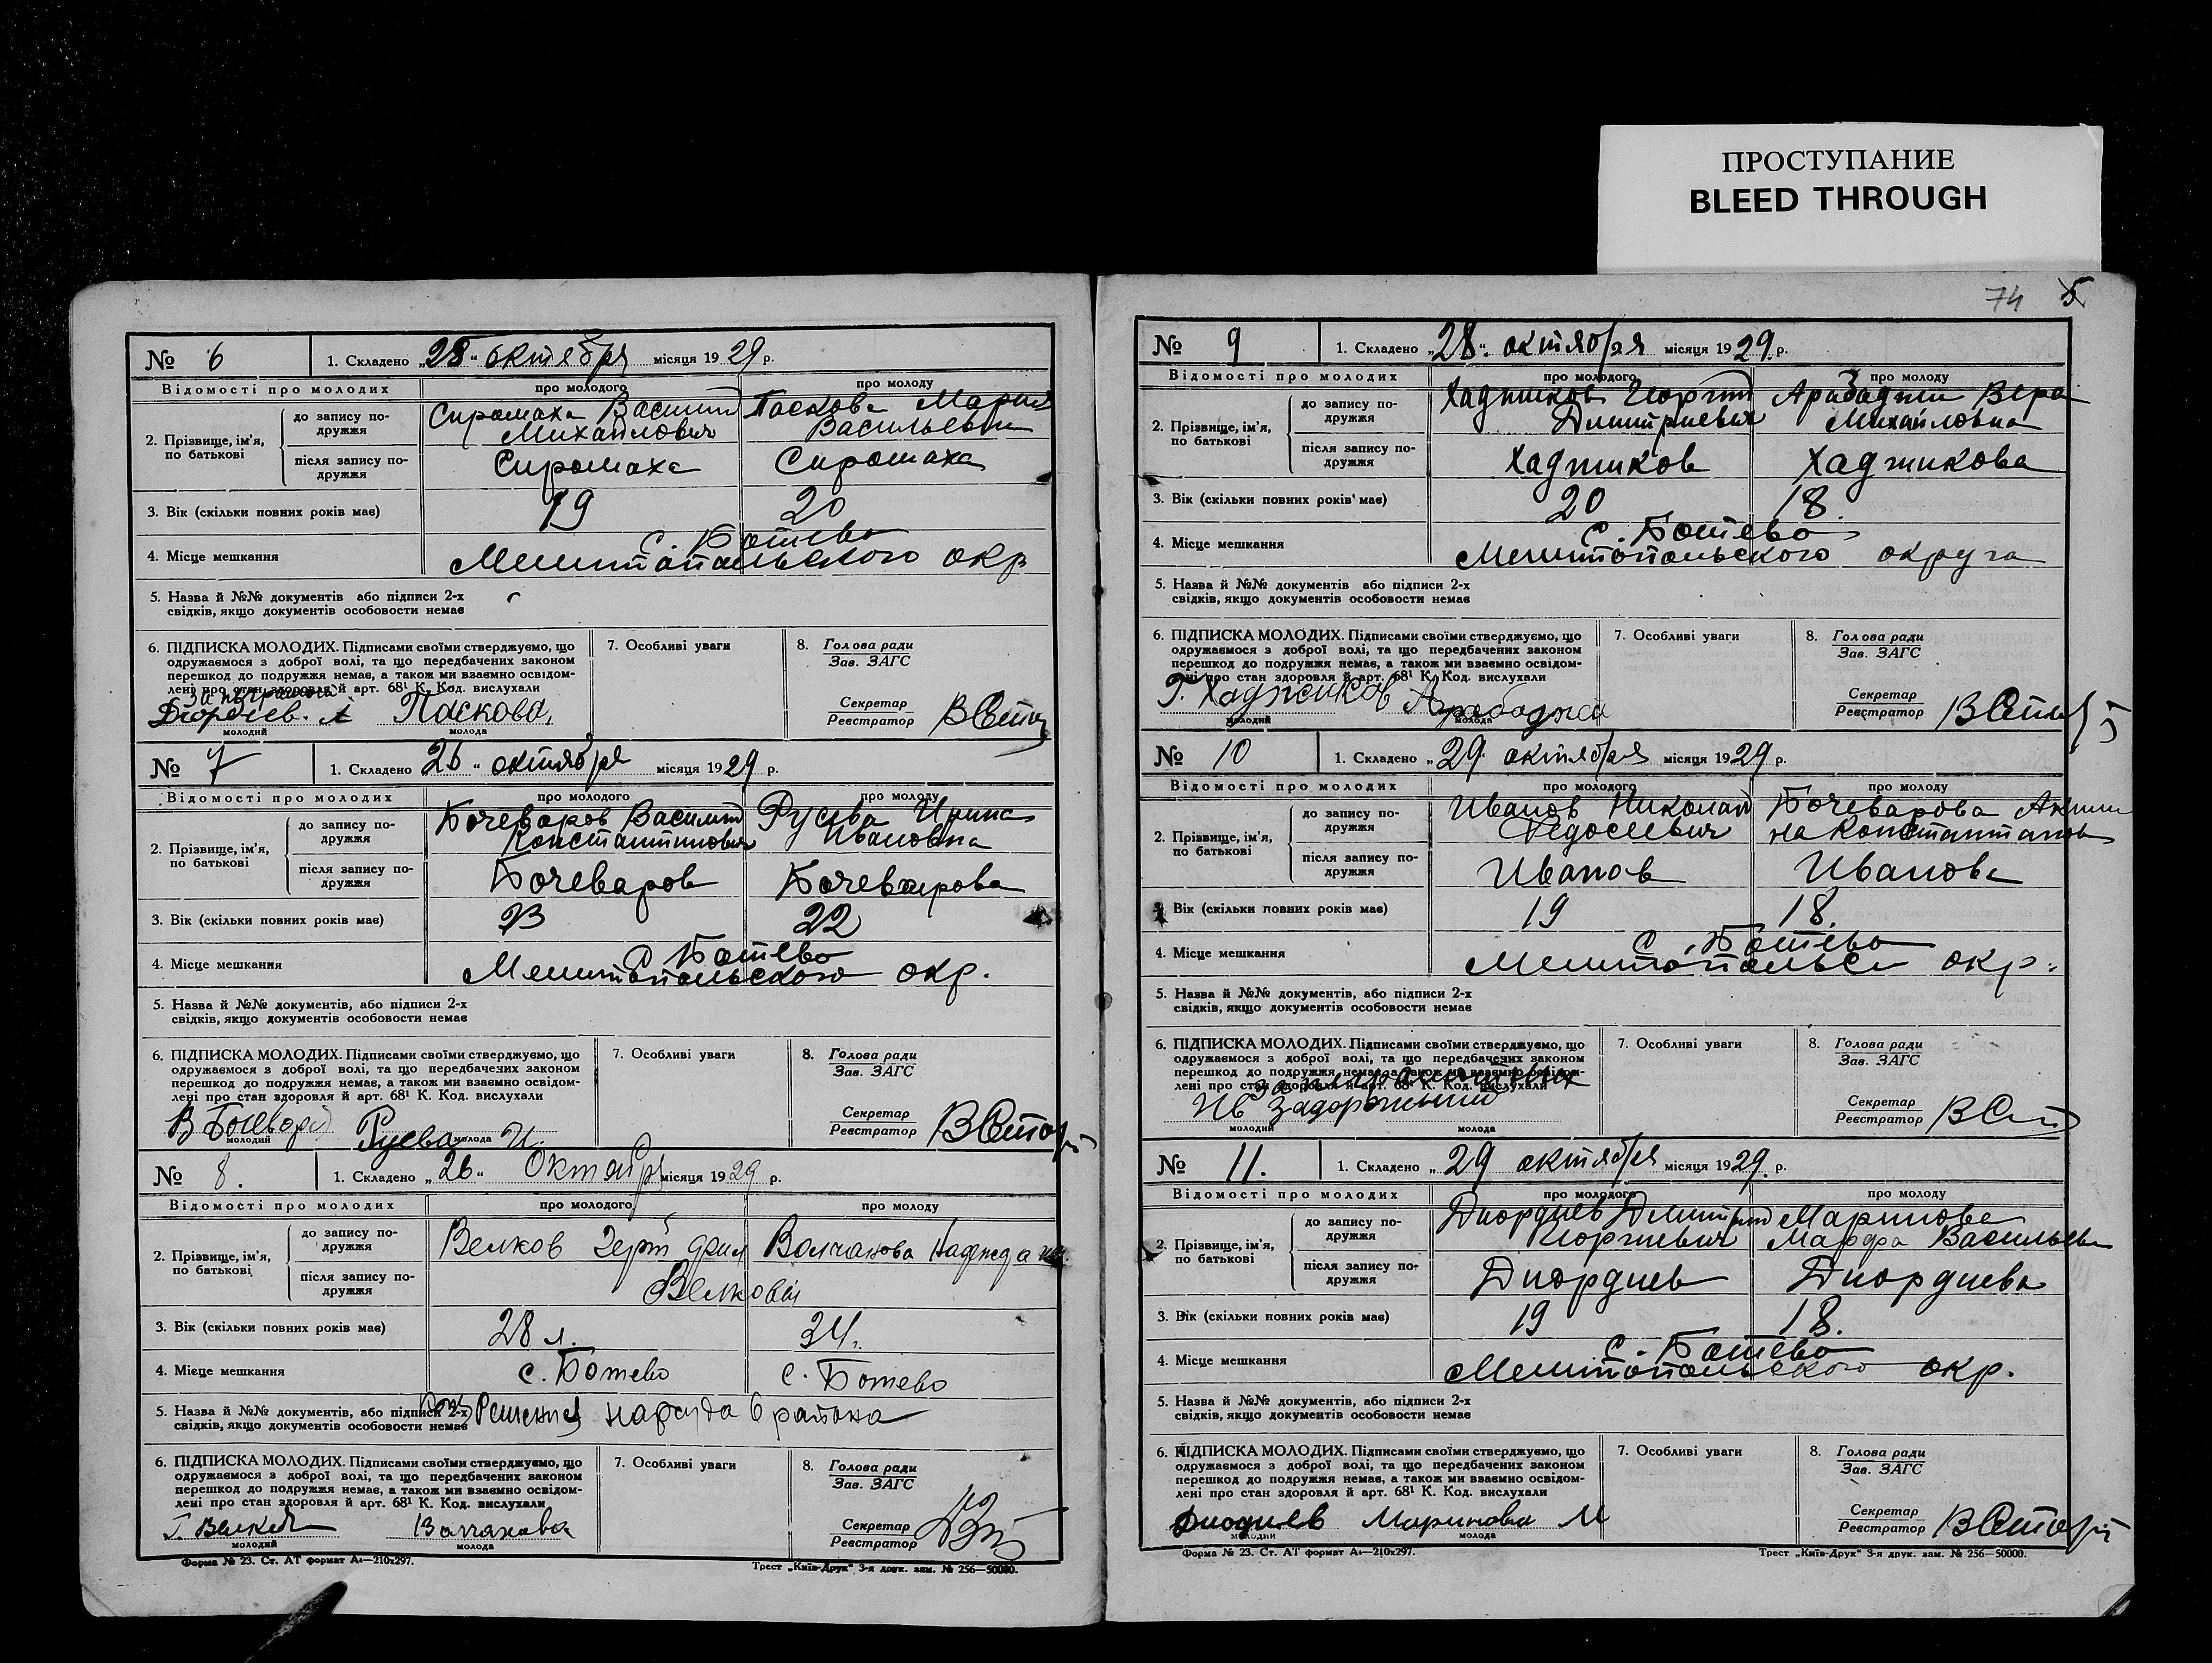 ПРОСТУПАНИЕ
BLEED THROUGH
74 5
№ 6 1. Складено „28“ октября місяця 1929 р.
Відомості про молодих про молодого про молоду
2. Прізвище, ім’я, по батькові
до запису подружжя
Сиромаха Василий Михайлович
Паскова Мария Васильевн
після запису подружжя
Сиромаха Сиромаха
3. Вік (скільки повних років має) 19 20
4. Місце мешкання с. Ботево
Мелитопольского окр
5. Назва й №№ документів або підписи 2-х
свідків, якщо документів особовости немає
6. ПІДПИСКА МОЛОДИХ. Підписами своїми стверджуємо, що
одружаємося з доброї волі, та що передбачених законом
перешкод до подружжя немає, а також ми взаємно освідом-
лені про стан здоровля й арт. 68¹ К. Код. вислухали
Паскова
молодий молода
7. Особливі уваги
8. Голова ради
Зав. ЗАГС
Секретар
Реєстратор
№ 7 1. Складено 26 “ октября місяця 1929 р.
Відомості про молодих про молодого про молоду
2. Прізвище, ім’я, по батькові
до запису подружжя
Бочеваров Василий Константинович
Русева Ирина Ивановна
після запису подружжя
Бочеваров Бочеварова
3. Вік (скільки повних років має) 23 22
4. Місце мешкання С Ботево
Мелитопольского окр.
5. Назва й №№ документів, або підписи 2-х
свідків, якщо документів особовости немає
6. ПІДПИСКА МОЛОДИХ. Підписами своїми стверджуємо, що
одружаємося з доброї волі, та що передбачених законом
перешкод до подружжя немає, а також ми взаємно освідом-
лені про стан здоровля й арт. 68¹ К. Код. вислухали
Русева И.
молодий молода
7. Особливі уваги
8. Голова ради
Зав. ЗАГС
Секретар
Реєстратор
№ 8. 1. Складено „26“ Октября місяця 1929 р.
Відомості про молодих про молодого про молоду
2. Прізвище, ім’я, по батькові
до запису подружжя
Велков
Волчанова Надежда
після запису подружжя
Велковы
3. Вік (скільки повних років має) 28 л. 34.
4. Місце мешкання с. Ботево с. Ботево
5. Назва й №№ документів, або підписи 2-х
свідків, якщо документів особовости немає
Решения нарсуда 6 района
6. ПІДПИСКА МОЛОДИХ. Підписами своїми стверджуємо, що
одружаємося з доброї волі, та що передбачених законом
перешкод до подружжя немає, а також ми взаємно освідом-
лені про стан здоровля й арт. 68¹ К. Код. вислухали
Г. Велков Волчанова
молодий молода
7. Особливі уваги
8. Голова ради
Зав. ЗАГС
Секретар
Реєстратор
Форма № 23. Ст. АТ формат А₄—210х297. Трест „Київ-Друк“ 3-я друк. зам. № 256—50000.
№ 9 1. Складено „28“. октября місяця 1929. р.
Відомості про молодих про молодого про молоду
2. Прізвище, ім’я, по батькові
до запису подружжя
Хаджиков Георгий Дмитриевич
Арабаджи Вера Михайловна
після запису подружжя
Хаджиков Хаджикова
3. Вік (скільки повних років має) 20 18.
4. Місце мешкання С. Ботево
Мелитопольского округа
5. Назва й №№ документів або підписи 2-х
свідків, якщо документів особовости немає
6. ПІДПИСКА МОЛОДИХ. Підписами своїми стверджуємо, що
одружаємося з доброї волі, та що передбачених законом
перешкод до подружжя немає, а також ми взаємно освідом-
лені про стан здоровля й арт. 68¹ К. Код. вислухали
Г. Хаджиков Арабаджи
молодий молода
7. Особливі уваги
8. Голова ради
Зав. ЗАГС
Секретар
Реєстратор
№ 10 1. Складено „29. октября місяця 1929. р.
Відомості про молодих про молодого про молоду
2. Прізвище, ім’я, по батькові
до запису подружжя
Иванов Николай Федосеевич
Бочеварова
після запису подружжя
Иванов Иванова
3. Вік (скільки повних років має) 19 18.
4. Місце мешкання С. Ботево
Мелитопольск окр.
5. Назва й №№ документів, або підписи 2-х
свідків, якщо документів особовости немає
6. ПІДПИСКА МОЛОДИХ. Підписами своїми стверджуємо, що
одружаємося з доброї волі, та що передбачених законом
перешкод до подружжя немає, а також ми взаємно освідом-
лені про стан здоровля й арт. 68¹ К. Код. вислухали
молодий молода
7. Особливі уваги
8. Голова ради
Зав. ЗАГС
Секретар
Реєстратор
№ 11. 1. Складено „29 октября місяця 1929. р.
Відомості про молодих про молодого про молоду
2. Прізвище, ім’я, по батькові
до запису подружжя
Диордиев Дмитрий Георгиевич
Маринова Марфа Васильевн
після запису подружжя
Диордиев Диордиева
3. Вік (скільки повних років має) 19 18.
4. Місце мешкання С. Ботево
Мелитопольского окр.
5. Назва й №№ документів, або підписи 2-х
свідків, якщо документів особовости немає
6. ПІДПИСКА МОЛОДИХ. Підписами своїми стверджуємо, що
одружаємося з доброї волі, та що передбачених законом
перешкод до подружжя немає, а також ми взаємно освідом-
лені про стан здоровля й арт. 68¹ К. Код. вислухали
Маринова М
молодий молода
7. Особливі уваги
8. Голова ради
Зав. ЗАГС
Секретар
Реєстратор
Форма № 23. Ст. АТ формат А₄—210х297. Трест „Київ-Друк“ 3-я друк. зам. № 256—50000.